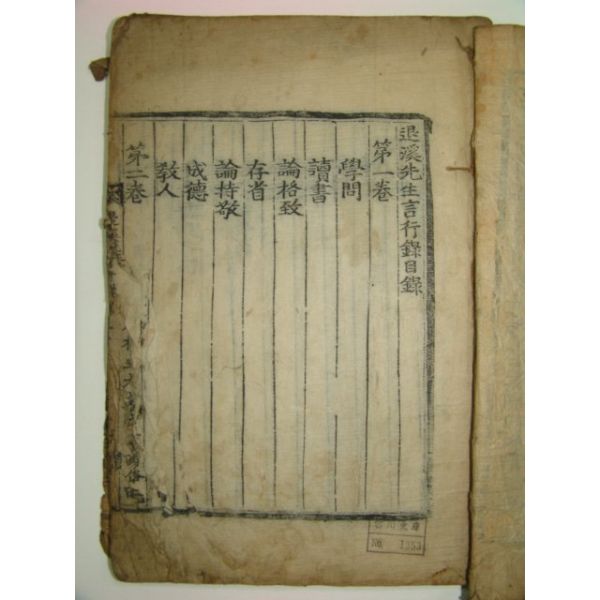 退溪先生言行錄目錄
第一卷
學問
讀書
論格致
存省
論持敬
成德
敎人
第二卷
No. 1353